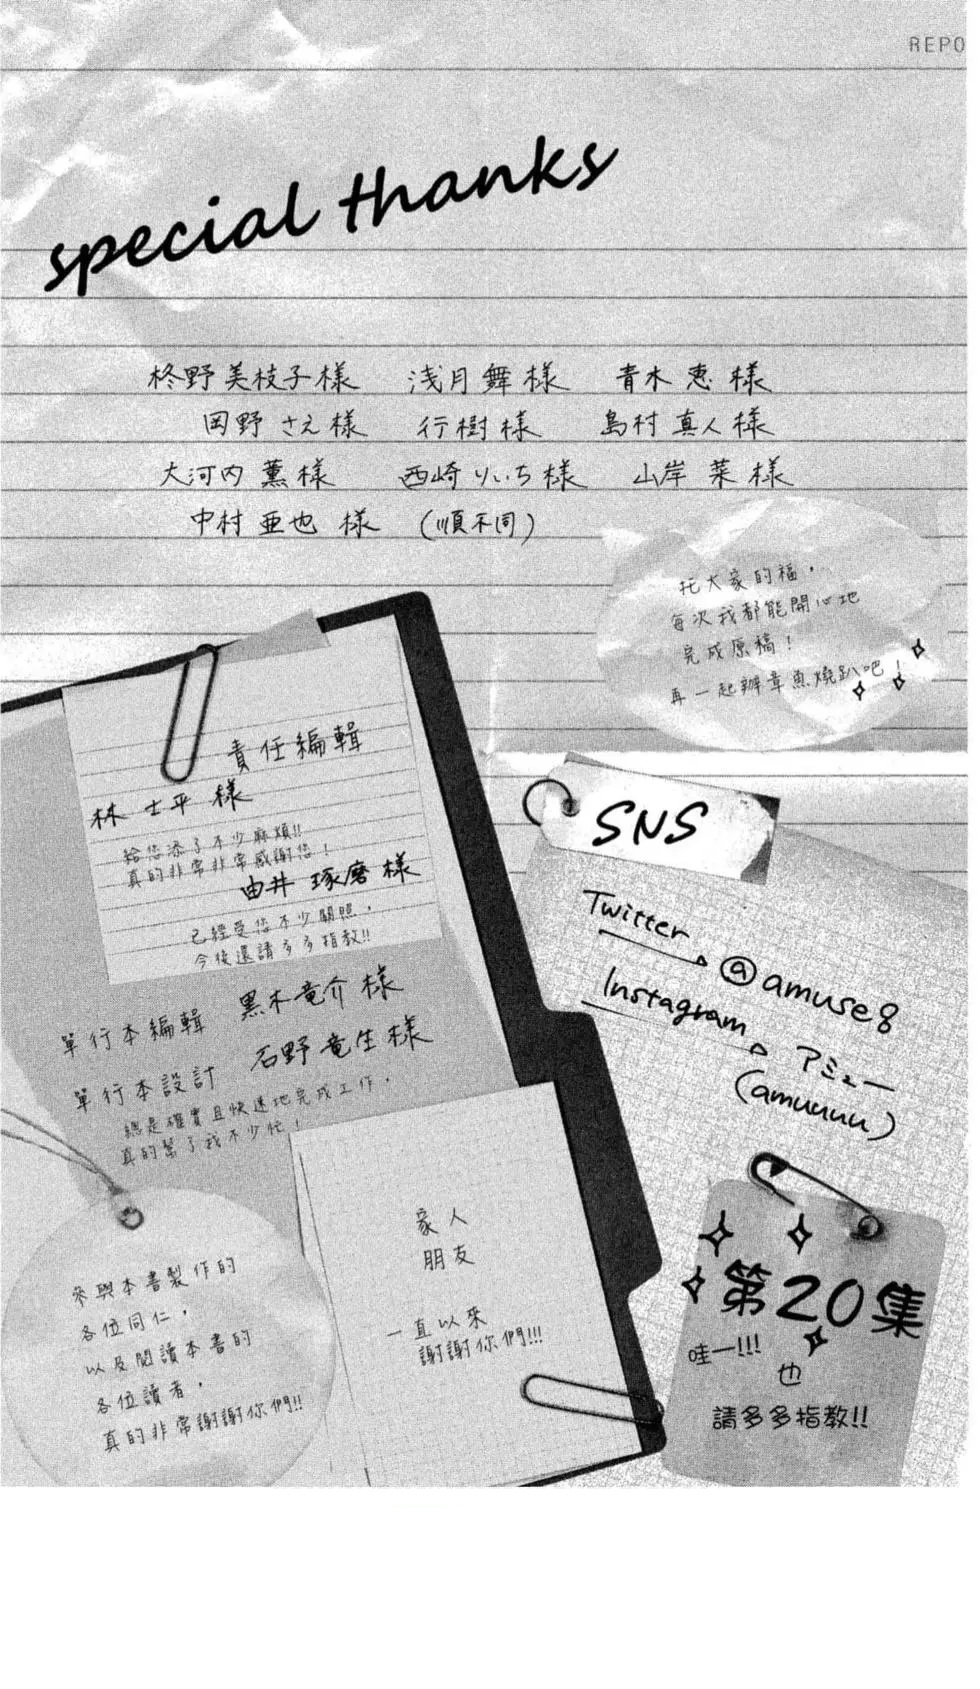 REPO
special thanks
柊野美枝子様 浅月舞様 青木恵様
岡野さえ様 行樹様 島村真人様
大河内薫様 西崎りいち様 山岸菜様
中村亜也様 (順不同)
托大家的福，
每次我都能開心地
完成原稿！
再一起辦章魚燒趴吧！
責任編輯
林士平様
給您添了不少麻煩!!
真的非常非常感謝您！
由井琢磨様
已經受您不少關照，
今後還請多多指教!!
單行本編輯 黒木竜介様
單行本設計 石野竜生様
總是確實且快速地完成工作，
真的幫了我不少忙！
參與本書製作的
各位同仁，
以及閱讀本書的
各位讀者，
真的非常謝謝你們!!
家人
朋友
一直以來
謝謝你們!!!
SNS
Twitter
@amuse8
Instagram
アミュー
(amuuuu)
第20集
哇—!!!
也
請多多指教!!